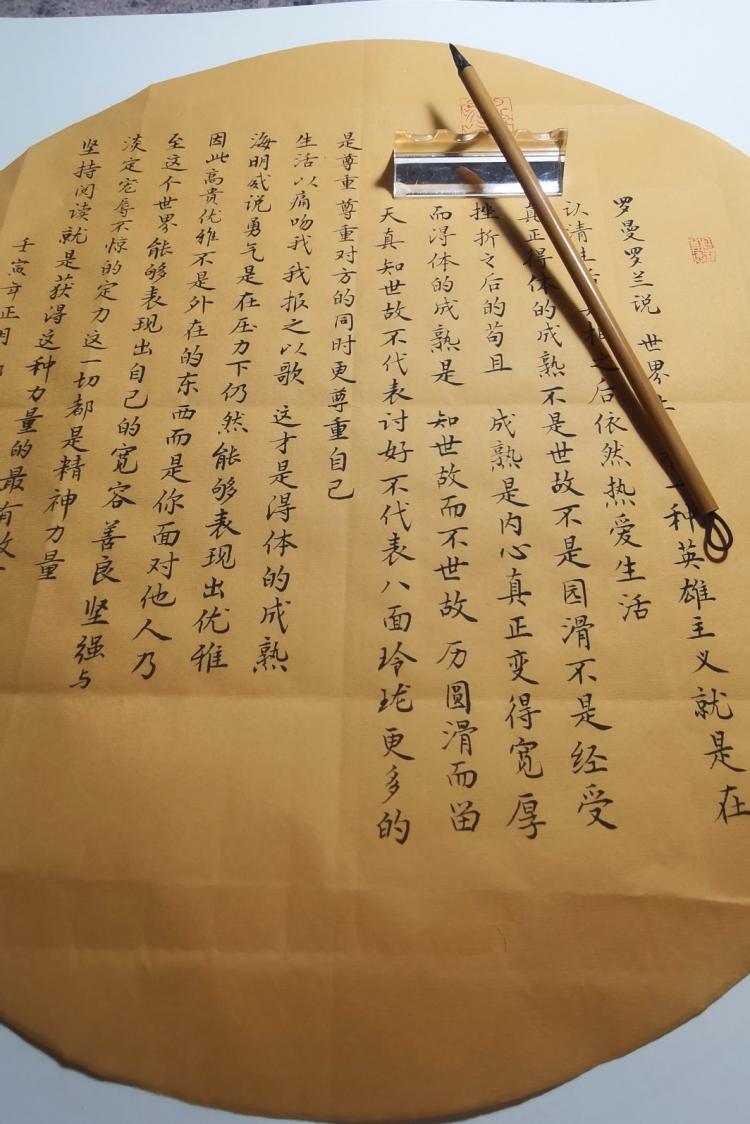 罗曼罗兰说 世界一种英雄主义就是在
认清生活相之后依然热爱生活
真正得体的成熟不是世故不是园滑不是经受
挫折之后的苟且 成熟是内心真正变得宽厚
而得体的成熟是 知世故而不世故 历圆滑而留
天真知世故不代表讨好不代表八面玲珑更多的
是尊重尊重对方的同时更尊重自己
生活以痛吻我我报之以歌 这才是得体的成熟
海明威说勇气是在压力下仍然能够表现出优雅
因此高贵优雅不是外在的东西而是你面对他人乃
至这个世界能够表现出自己的宽容 善良 坚强与
淡定宠辱不惊的定力这一切都是精神力量
坚持阅读就是获得这种力量的最有
壬寅年正月